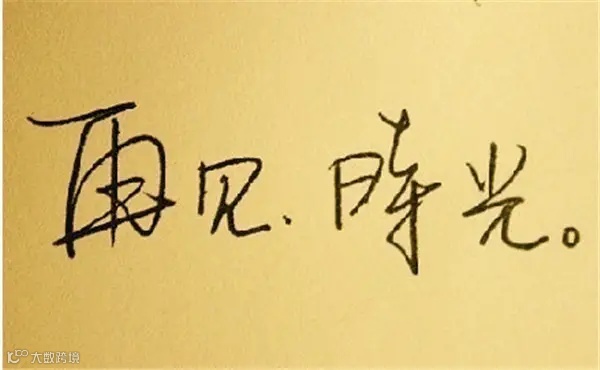 再见、時光。
大数跨境